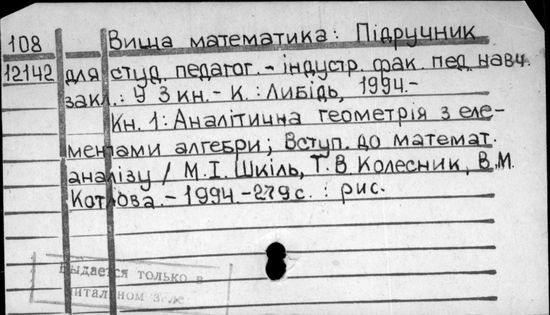 108 Вища математика: Підручник
12142 для студ. педагог.- індустр. фак. пед. навч.
закл.: У 3 кн.- К.: Либідь, 1994.-
Кн. 1: Аналітична геометрія з еле-
ментами алгебри; Вступ. до математ.
аналізу / М.І. Шкіль, Т.В. Колесник, В.М.
Котлова.- 1994.-279с. : рис.
Выдается только в
читальном зале